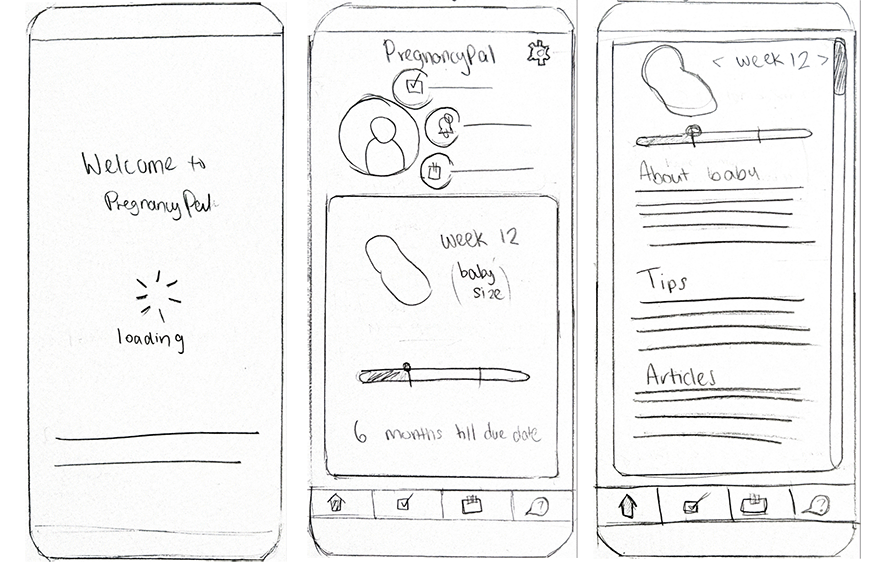 Welcome to
PregnancyPal
loading
PregnancyPal
week 12
(baby
size)
6 months till due date
< week 12 >
About baby
Tips
Articles